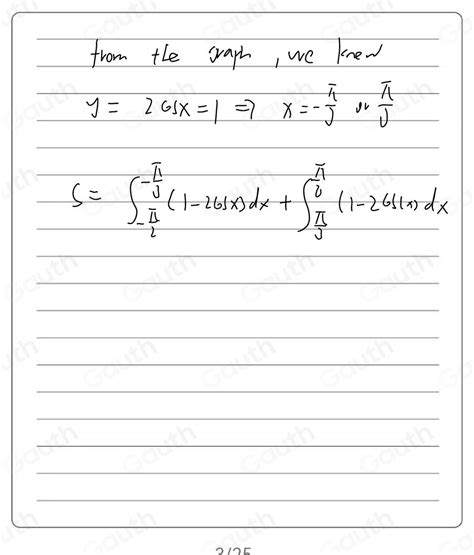 from the graph, we knew
y = 2cosx = 1 ⇒ x = -π/3 or π/3
S = ∫_{-π/2}^{-π/3} (1-2cosx)dx + ∫_{π/3}^{π/2} (1-2cosx)dx
3/25